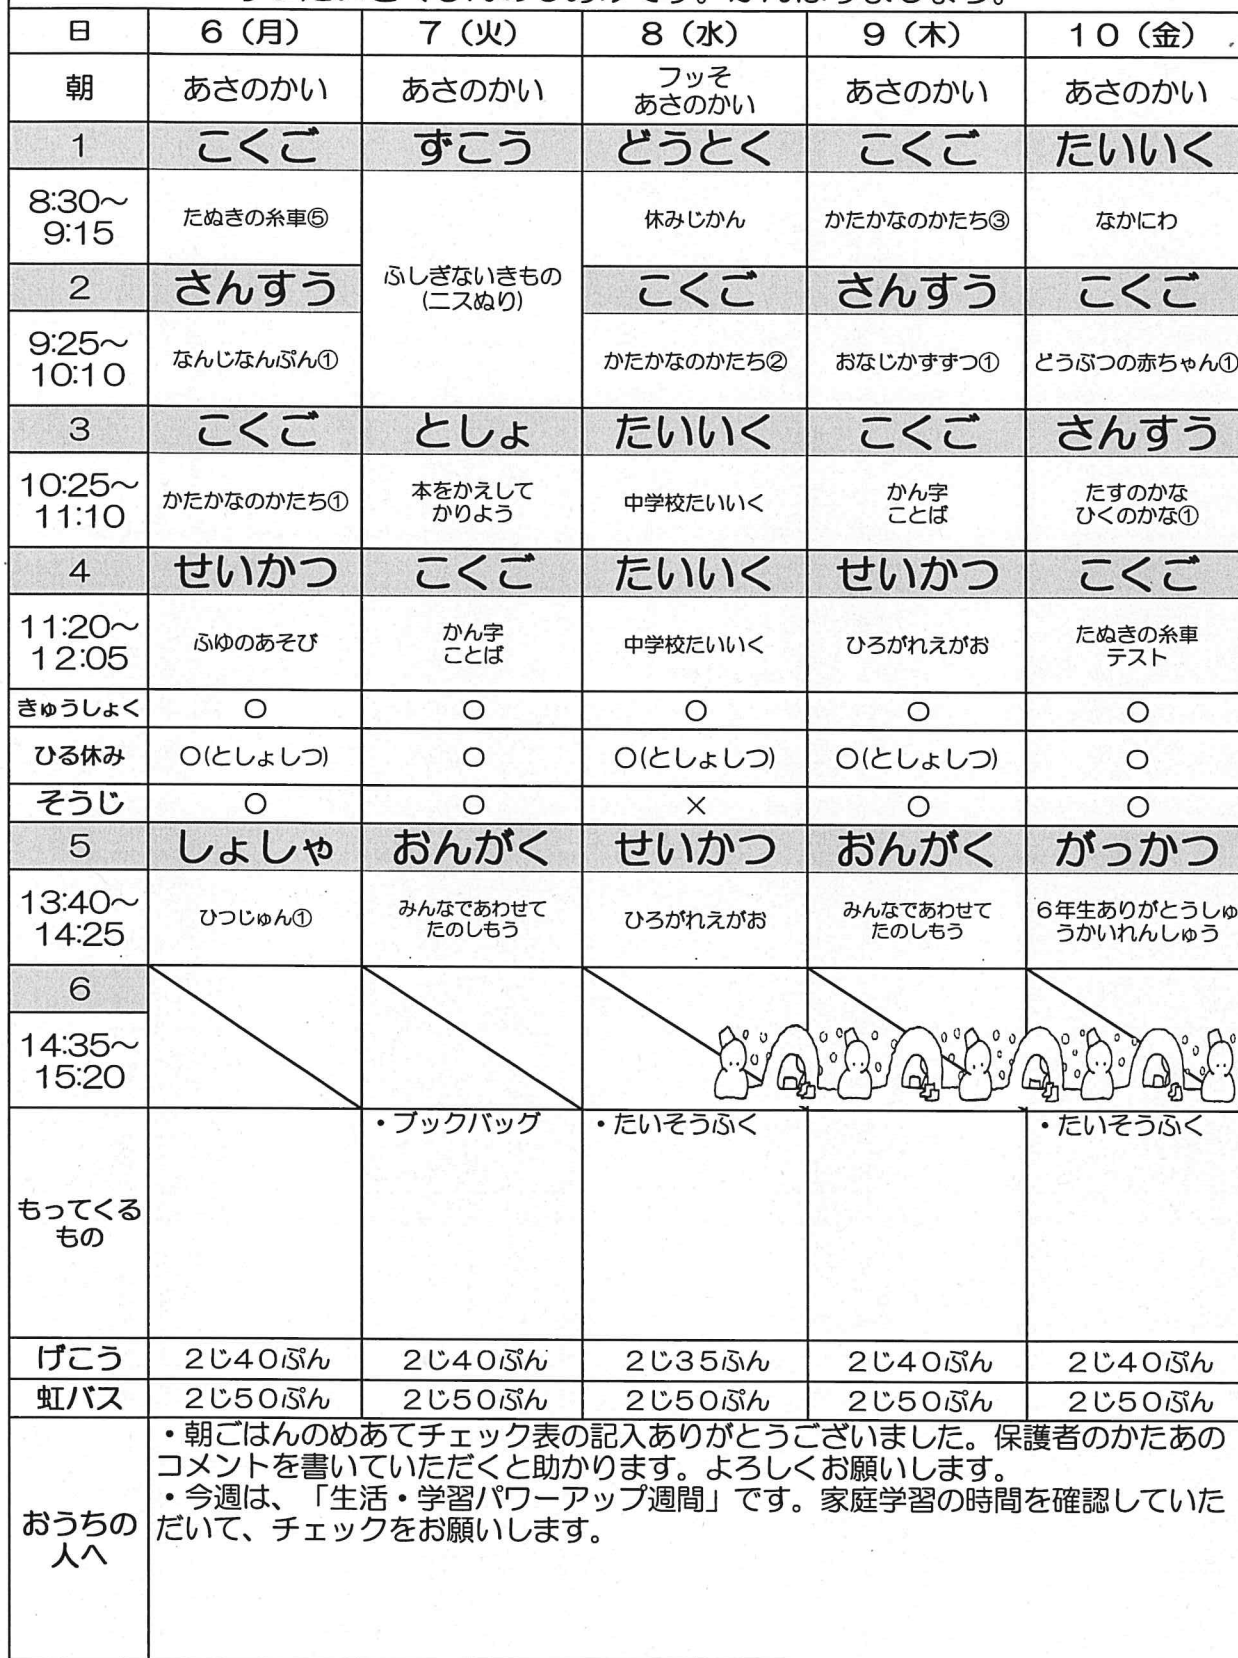 日 6（月） 7（火） 8（水） 9（木） 10（金）
朝 あさのかい あさのかい フッそ あさのかい あさのかい
あさのかい
1 こくご ずこう どうとく こくご たいいく
8:30～
9:15
たぬきの糸車⑤ 休みじかん かたかなのかたち③ なかにわ
ふしぎないきもの
(ニスぬり)
2 さんすう こくご さんすう こくご
9:25～
10:10
なんじなんぷん① かたかなのかたち② おなじかずずつ① どうぶつの赤ちゃん①
3 こくご としょ たいいく こくご さんすう
10:25～
11:10
かたかなのかたち①
本をかえして
かりよう
中学校たいいく
かん字
ことば
たすのかな
ひくのかな①
4 せいかつ こくご たいいく せいかつ こくご
11:20～
12:05
ふゆのあそび
かん字
ことば
中学校たいいく
ひろがれえがお
たぬきの糸車
テスト
きゅうしょく ○ ○ ○ ○ ○
ひる休み ○(としょしつ) ○ ○(としょしつ) ○(としょしつ) ○
そうじ ○ ○ × ○ ○
5 しょしゃ おんがく せいかつ おんがく がっかつ
13:40～
14:25
ひつじゅん①
みんなであわせて
たのしもう
ひろがれえがお
みんなであわせて
たのしもう
6年生ありがとうしゅ
うかいれんしゅう
6
14:35～
15:20
もってくる
もの
・ブックバッグ
・たいそうふく
・たいそうふく
げこう 2じ40ぷん 2じ40ぷん 2じ35ふん 2じ40ぷん 2じ40ぷん
虹バス 2じ50ぷん 2じ50ぷん 2じ50ぷん 2じ50ぷん 2じ50ぷん
おうちの
人へ
・朝ごはんのめあてチェック表の記入ありがとうございました。保護者のかたあの
コメントを書いていただくと助かります。よろしくお願いします。
・今週は、「生活・学習パワーアップ週間」です。家庭学習の時間を確認していた
だいて、チェックをお願いします。